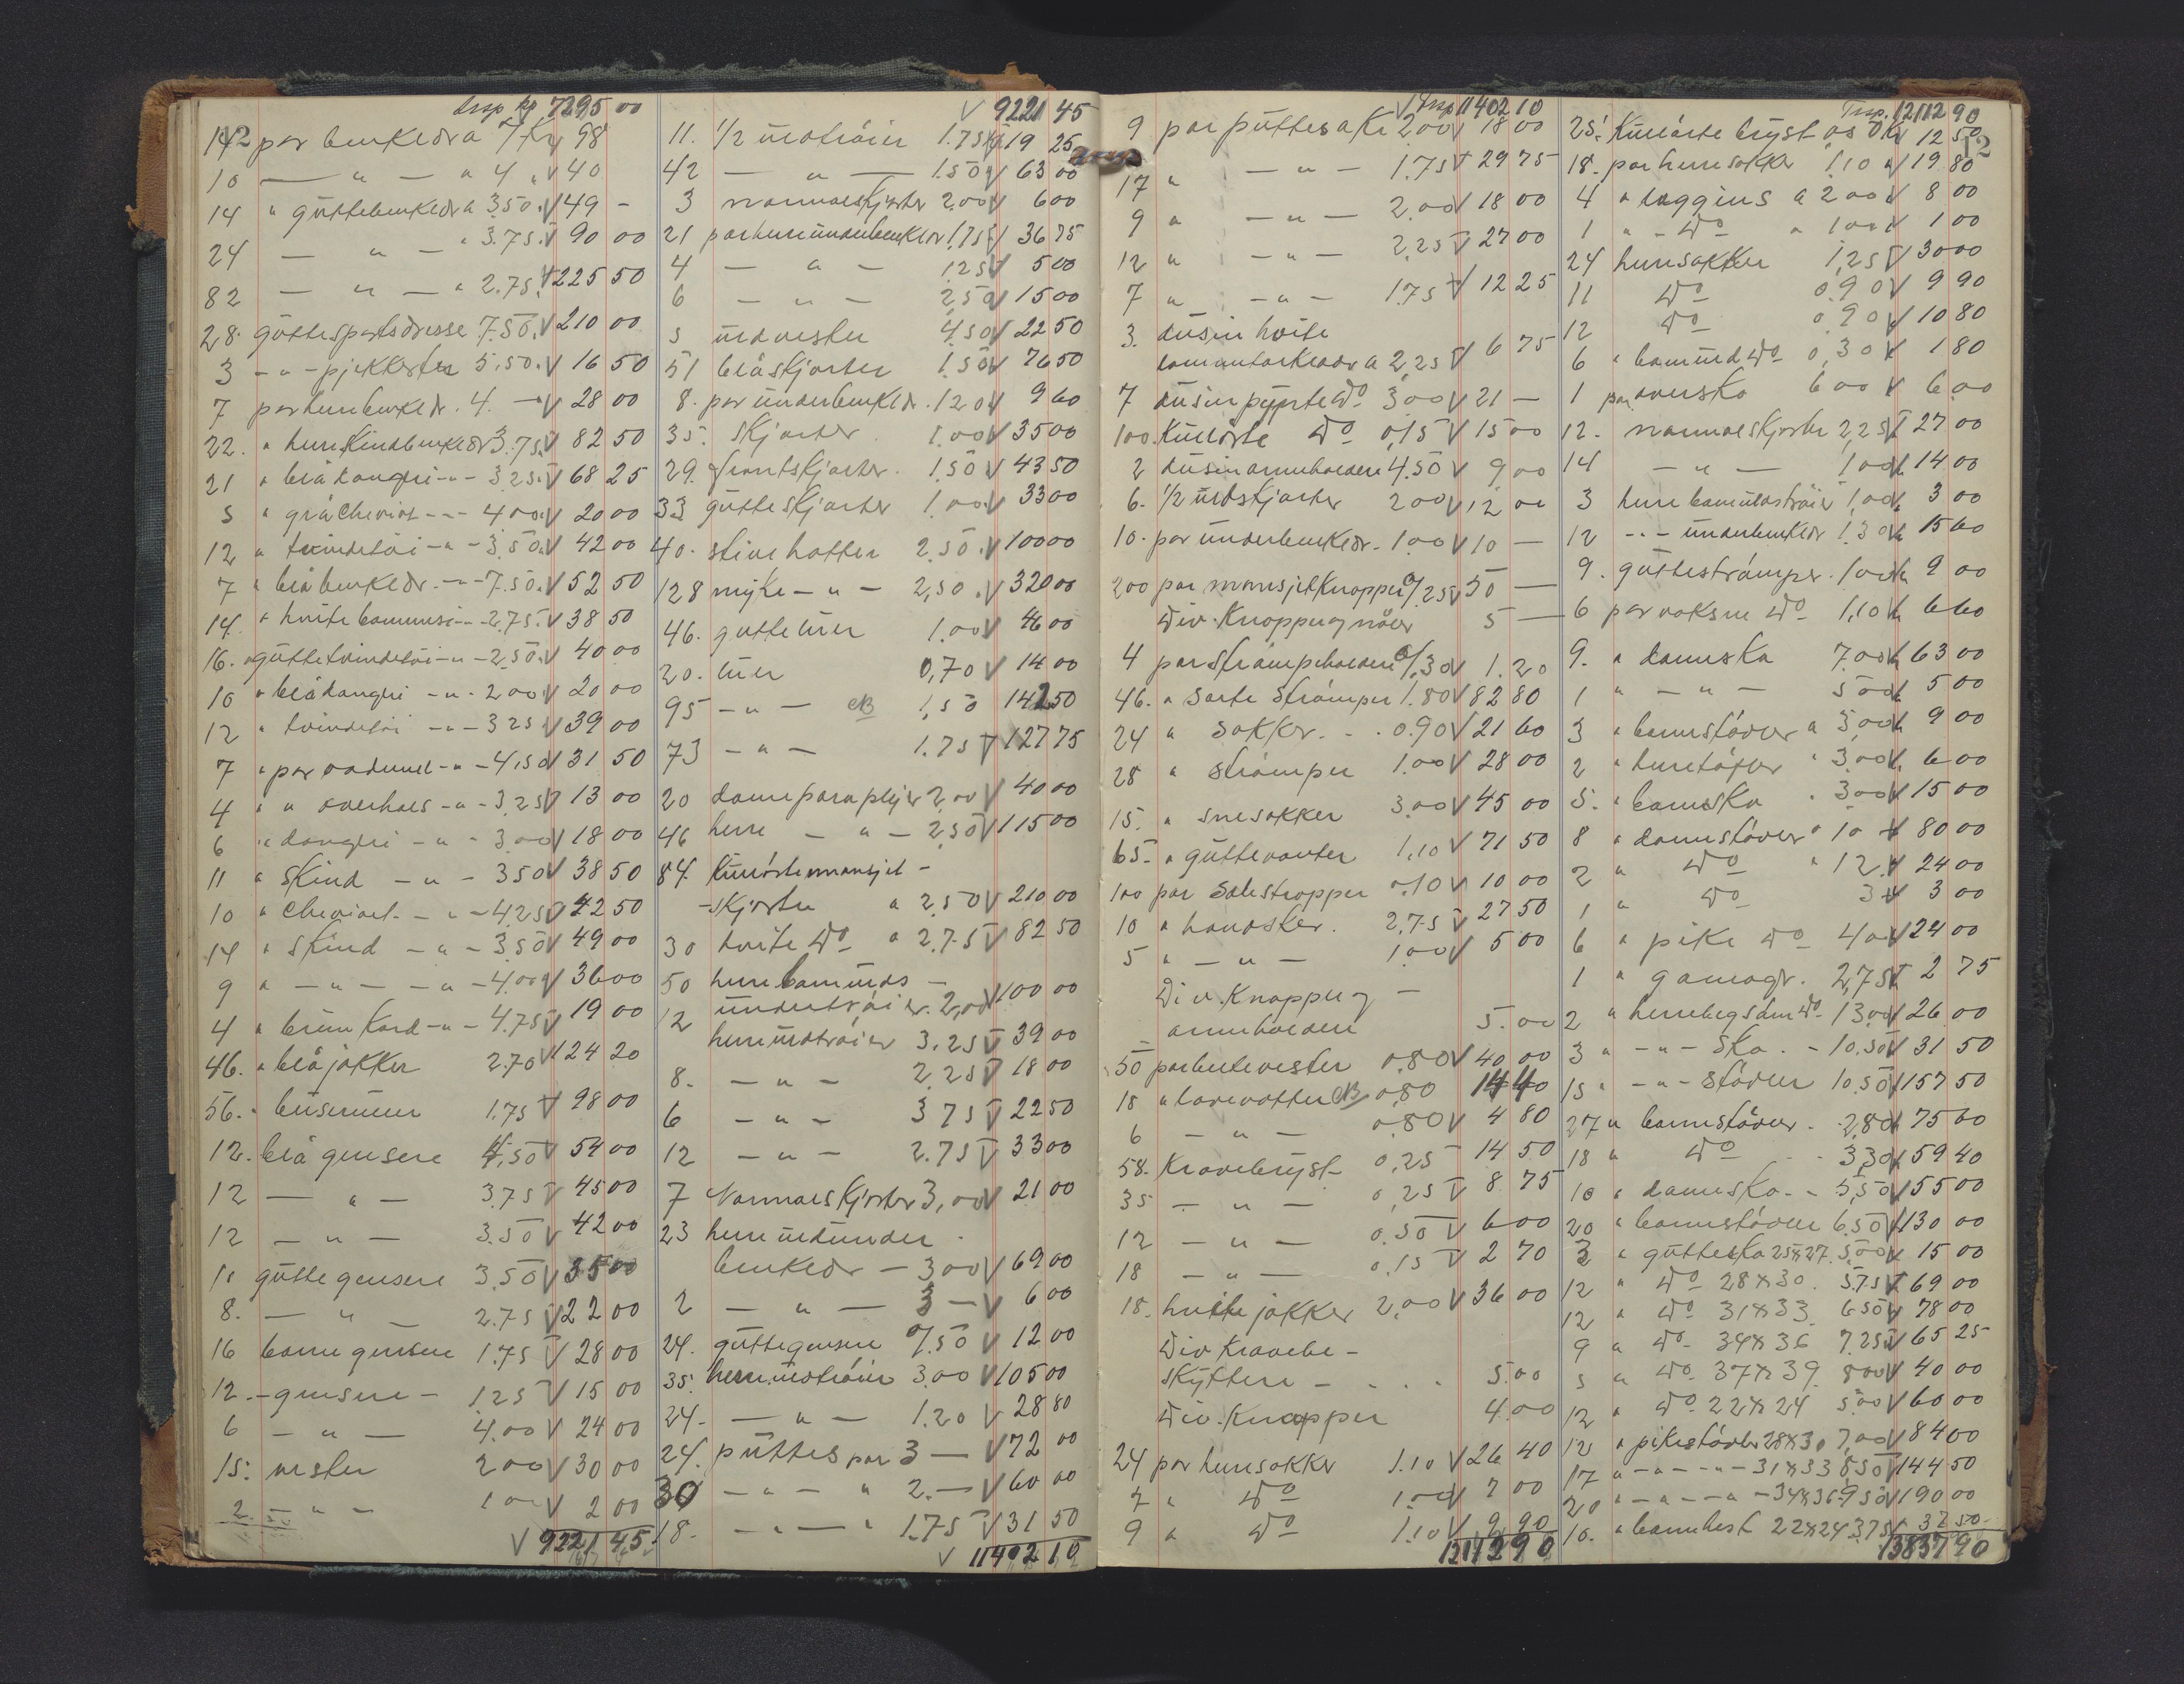 Trsp kr 7295 00
14 par benkedr a 7 Kr √ 98
10 — " — " 4 " √ 40
14 " guttebenkedr a 3.50 √ 49 -
24 — " — " 3.75 √ 90 00
82 — " — " 2.75 √ 225 50
28 guttesportsdresse 7.50 √ 210 00
3 - " - pjekkerter 5.50 √ 16 50
7 par herrbenkedr. 4. — √ 28 00
22. " herreskindbenkedr 3.75 √ 82 50
21 " blå dongeri - " - 3.25 √ 68 25
5 " grå Cheviot - - - 4.00 √ 20 00
12 " tvindetöi - " - 3.50 √ 42 00
7 " blå benkedr. - " - 7.50 √ 52 50
14. " hvite bommesi - - 2.75 √ 38 50
16. " guttetvindetöi - " - 2.50 √ 40 00
10 " blå dongeri - " - 2.00 √ 20 00
12 " tvindetöi - " - 3 25 √ 39 00
7 " par vadmel - " - 4.50 √ 31 50
4 " " overhals - " - 3.25 √ 13 00
6 " dongeri - " - 3.00 √ 18 00
11 " Skind - " - 3 50 √ 38 50
10 " Cheviot - " - 4.25 √ 42 50
14 " Skind - " - 3.50 √ 49 00
9 " - " - - " - 4.00 √ 36 00
4 " brun Kord - " - 4.75 √ 19 00
46. " blå jakker 2.70 √ 124 20
56. " buseruner 1.75 √ 98 00
12. blå gensere 4.50 √ 54 00
12 — " - 3.75 √ 45 00
12 - " - 3.50 √ 42 00
10 gutte gensere 3.50 √ 35 00
8. — " — 2.75 √ 22 00
16 barne gensere 1.75 √ 28 00
12 - gensere - 1.25 √ 15 00
6 - " - 4.00 √ 24 00
15. vester 2 00 √ 30 00
2 - " - 1 00 √ 2 00
√ 9221 45
√ 9221 45
11. 1/2 uldtröier 1.75 √ 19 25
42 — " — 1.50 √ 63 00
3 normalskjorter 2.00 √ 6 00
21 par herreunderbenkledr 1.75 √ 36 75
4 — " — 1.25 √ 5 00
6 - " - 2.50 √ 15 00
5 uldvester 4.50 √ 22 50
51 blåskjorter 1.50 √ 76 50
8. par underbenkledr. 1.20 √ 9 60
35. Skjorter 1.00 √ 35 00
29. frontskjorter. 1.50 √ 43 50
33 gutteskjorter 1.00 √ 33 00
40. stive hatter 2.50 √ 100 00
128 myke - " - 2,50 √ 320 00
46. guttetuer 1.00 √ 46 00
20. tuer 0,70 √ 14 00
95 - " - 1,50 142 50
73 - " - 1.75 √ 127 75
20 dameparaplyer 2,00 √ 40 00
46 herre - " - 2,50 √ 115 00
84. kulörtemansjet -
- skjorter a 2.50 √ 210 00
30 hvite Do a 2.75 √ 82 50
50 herre bomulds -
undertröier. 2,00 √ 100 00
12 herreuldtröier 3.25 √ 39 00
8. - " - 2.25 √ 18 00
6 - " - 3 75 √ 22 50
12 - " - 2.75 √ 33 00
7 Normalskjorter 3,00 √ 21 00
23 herre uldunder
benkedr - 3 00 √ 69 00
2 — " — 3 — √ 6 00
24. guttegensere 0/.50 √ 12 00
35. herreuldtröier 3.00 √ 105 00
24. — " — 1.20 √ 28 80
24. puttes par 3 — √ 72 00
30 - " - " 2.— √ 60 00
18. - " - " 1.75 √ 31 50
√ 11402 10
√ Trsp 11402 10
9 par puttes a Kr 2.00 √ 18 00
17 " - " - 1.75 √ 29 75
9 " - " - 2.00 √ 18 00
12 " - " - 2.25 √ 27 00
7 " - " - 1.75 √ 12 25
3. dusin hvite
lommetorklædr a 2,25 √ 6 75
7 dusin pyprte Do 3,00 √ 21 —
100. Kulörte Do 0,15 √ 15 00
2 dusin armholdere 4.50 √ 9 00
6. 1/2 uldskjorter 2 00 √ 12 00
10. par underbenkledr. 1.00 √ 10 —
200 par mansjetknapper 0/.25 √ 50 —
Div. Knapper og nåler 5 —
4 par strömpeholdere 0/.30 √ 1.20
46. " sorte strömper 1.80 √ 82 80
24 " sokker. . . 0.90 √ 21 60
28 " strömper 1.00 √ 28 00
15. " snesokker 3.00 √ 45 00
65. " guttevanter 1,10 √ 71 50
100 par Selestropper 0.10 √ 10 00
10 " handsker. 2,75 √ 27 50
5 " - " - 1.00 √ 5 00
Div. Knapper og -
armholdere 5.00
50 par 0.80 √ 40 00
18 " lovevotter 0.80 14 40
6 - " - 0.80 √ 4 80
58. Kravebryst 0,25 14 50
35 - " - 0,25 √ 8 75
12 - " - 0.50 √ 6 00
18 - " - 0.15 √ 2 70
18. hvite jakker 2.00 √ 36 00
Div Kravebe -
skyttere - - . . 5.00
Div. Knapper 4.00
24 par herresokker 1.10 √ 26 40
7 " Do 1.00 √ 7 00
9 " Do 1.10 √ 9 90
12112 90
Trsp. 12112 90
12
25. Kulörte bryst a 50 √ 12 50
18. par herresokker 1.10 √ 19 80
4 " leggins a 2 00 √ 8 00
1 " - Do " 1 00 √ 1 00
24 herresokker 1,25 √ 30 00
11 Do 0.90 √ 9 90
12 Do 0.90 √ 10 80
6 " bomuld Do 0,30 √ 1 80
1 par oversko 6 00 √ 6.00
12. normalskjorter 2,25 √ 27 00
14 - " - 1,00 √ 14 00
3 herre bomuldströier 1,00 √ 3 00
12 - " - underbenkledr 1.30 √ 15 60
9. gutteströmper. 1.00 √ 9 00
6 par voksne Do 1,10 √ 6 60
9. " damesko 7.00 √ 63 00
1 " - " - 5 00 √ 5 00
3 " barnestövler a 3,00 √ 9 00
2 " herretöfler " 3,00 √ 6 00
5. " barnesko " 3 00 √ 15 00
8 " damestövler " 10 √ 80 00
2 " Do " 12 √ 24 00
1 " Do 3 √ 3 00
6 " pike Do 4 00 √ 24 00
1 " gamager. 2,75 √ 2 75
2 " Do 13,00 √ 26 00
3 " - " - Sko. - 10.50 √ 31 50
15 " - " - stövler 10.50 √ 157 50
27 " barnestövler. 2,80 √ 75 60
18 " Do 3,30 √ 59 40
10 " damesko. - 5,50 √ 55 00
20 " barnestövler 6.50 √ 130 00
3 " guttesko 25 x 27. 5.00 √ 15 00
12 " Do 28 x 30. 5.75 √ 69 00
12 " Do 31 x 33 6.50 √ 78 00
9 " Do 34 x 36 7.25 √ 65 25
5 " Do 37 x 39. 8 00 √ 40 00
12 " Do 22 x 24 5.00 √ 60 00
12 " pikestövler 28 x 30 7,00 √ 84 00
17 " - " - " - 31 x 33 8.50 √ 144 50
20 " - " - " - 34 x 36 9.50 √ 190 00
10. " 22 x 24 3.75 √ 37 50
13837 90